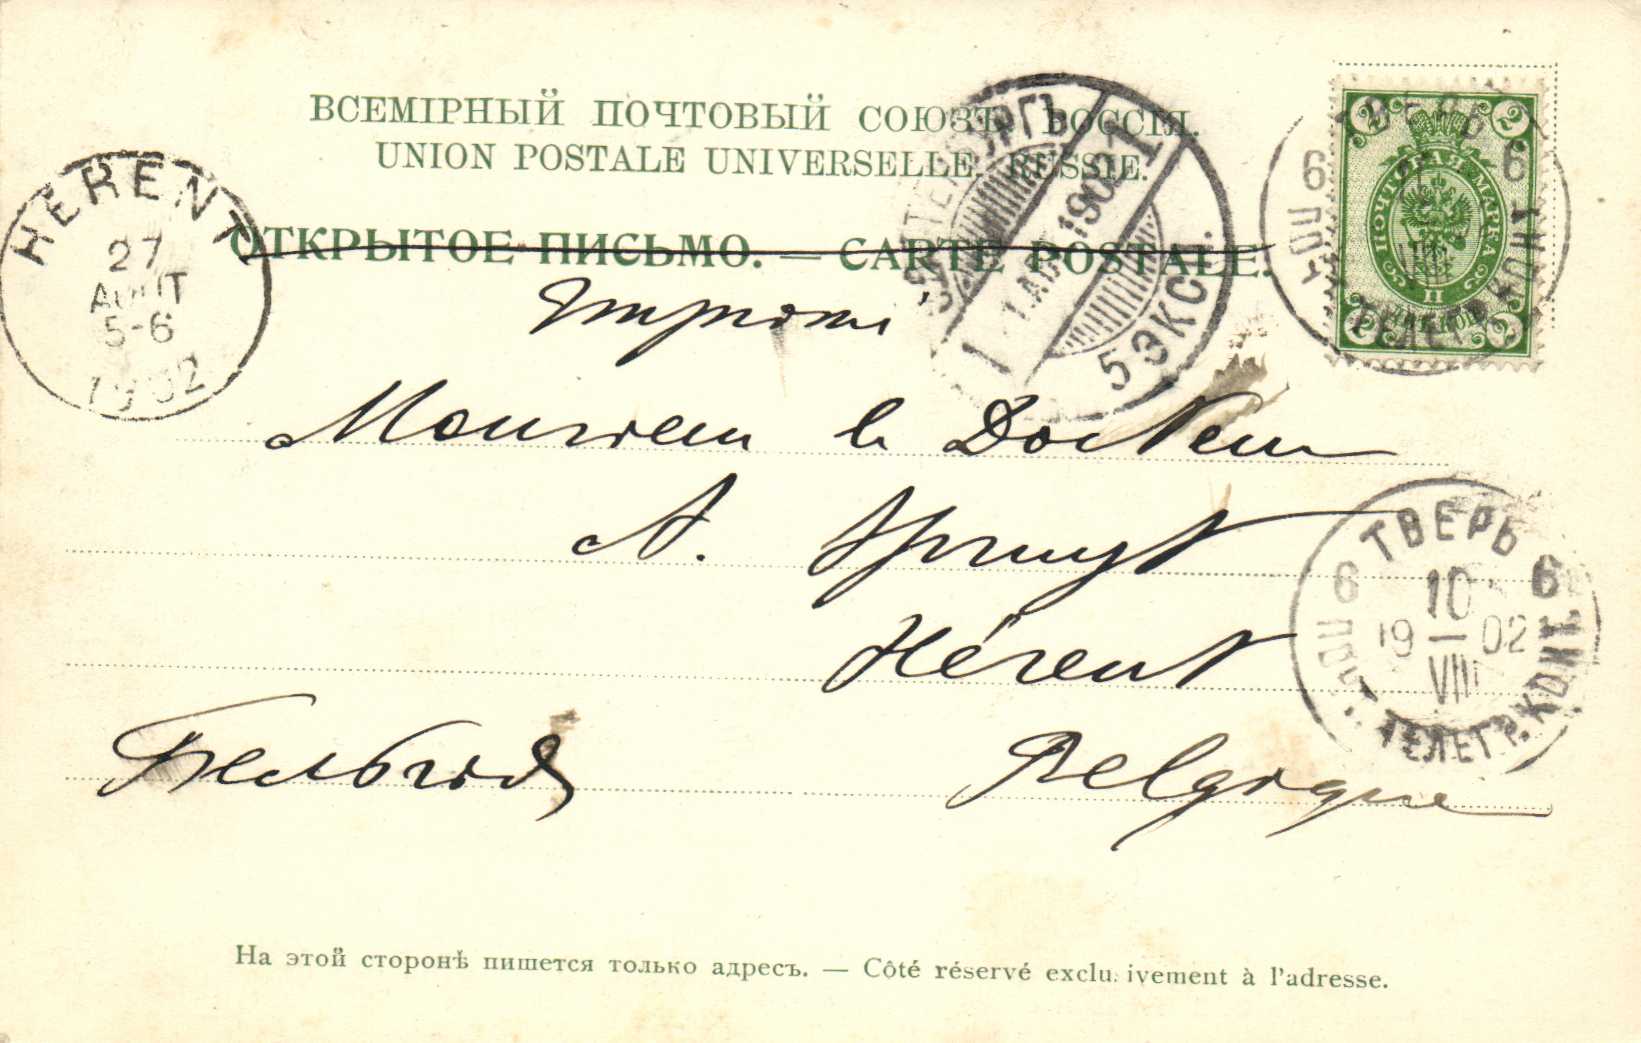 ВСЕМІРНЫЙ ПОЧТОВЫЙ СОЮЗЪ. РОССІЯ.
UNION POSTALE UNIVERSELLE. RUSSIE.
ОТКРЫТОЕ ПИСЬМО. — CARTE POSTALE.
HERENT
27
AOUT
5-6
1902
1902
5 ЭКСП.
ТВЕРЬ
6 6
ПОЧТОВАЯ МАРКА
2 2
2 2
Monsieur le Docteur
A.
Hérent
Бельгія Belgique
ТВЕРЬ
6 10 6
19 02
VIII
ПОЧТ. ТЕЛЕГР. КОНТ.
На этой сторонѣ пишется только адресъ. — Côté réservé exclu. ivement à l'adresse.